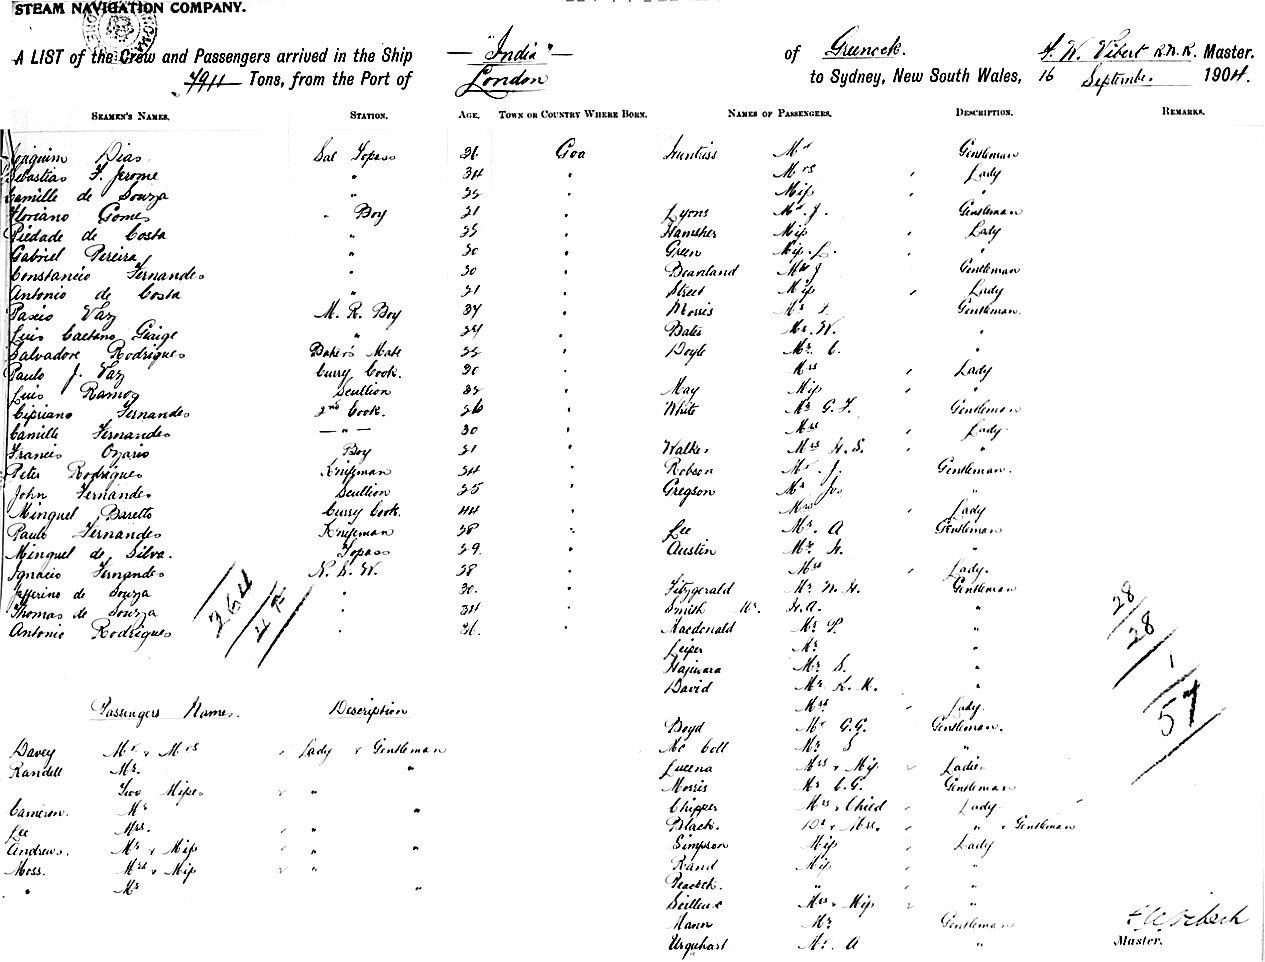 STEAM NAVIGATION COMPANY.
A LIST of the Crew and Passengers arrived in the Ship "India" of Greenock. Vibert R.N.R. Master.
Tons, from the Port of London to Sydney, New South Wales, 16 September 1904.
SEAMEN'S NAMES. STATION. AGE. TOWN OR COUNTRY WHERE BORN.
Dias Sal Topass 36 Goa
Sebastiao F. Jerome " 34 "
Camille de Souza " "
Floriano Gomes " Boy 21 "
Piedade de Costa " "
Gabriel Pereira " 30 "
Constancio Fernandes " 30 "
Antonio de Costa " 21 "
Vaz M. R. Boy "
Luis Caetano " "
Salvadore Rodrigues Baker's Mate "
Paulo J. Vaz Curry Cook. 30 "
Luis Ramos Scullion "
Cipriano Fernandes 2nd Cook. 26 "
Camille Fernandes — " — 30 "
Francis Ozario Boy 21 "
Peter Rodrigues Knifeman 24 "
John Fernandes Scullion 25 "
Minguel Baretto Curry Cook. 44 "
Paulo Fernandes Knifeman 28 "
Minguel de Silva. Topass 29. "
Ignacio Fernandes 28 "
de Souza " 30. "
Thomas de Souza " 34 "
Antonio Rodrigues " 36. "
Passengers Names. Description
Davey Mr & Mrs Lady & Gentleman
Randell Mr. "
Two Misses "
Cameron. Mr "
Lee Mrs. "
Andrews. Mr & Miss " "
Moss. Mrs & Miss "
" Mr "
NAMES OF PASSENGERS. DESCRIPTION. REMARKS.
Mr Gentleman
Mrs Lady
Miss "
Lyons Mr. J. Gentleman
Hamsher Miss Lady
Green Miss L. "
Beanland Mr J Gentleman
Street Miss Lady
Morris Mr Gentleman.
Bates Mr. W. "
Doyle Mr. C. "
Mrs Lady
May Miss "
White Mr G. F. Gentleman
Mrs Lady
Walker Mrs H. S. "
Robson Mr. J. Gentleman.
Gregson Mr Jos "
Mrs Lady
Lee Mr. A Gentleman
Austin Mr. H. "
Mrs Lady.
Fitzgerald Mr. W. H. Gentleman
Smith H. A. "
Macdonald Mr. P. "
Leiper Mr "
Hajiwara Mr. S. "
David Mr K. M. "
Mrs Lady.
Boyd Mr G.G. Gentleman.
Mc Coll Mr. S "
Lucena Mrs & Miss Ladies
Morris Mr C. G. Gentleman
Chipper Mrs & Child Lady
Black. Dr & Mrs. " & Gentleman
Simpson Miss Lady
Rand Miss "
Peacock. " "
Mrs & Miss "
Mann Mr Gentleman
Urquhart Mr. A "
28
28
1
57
Master.